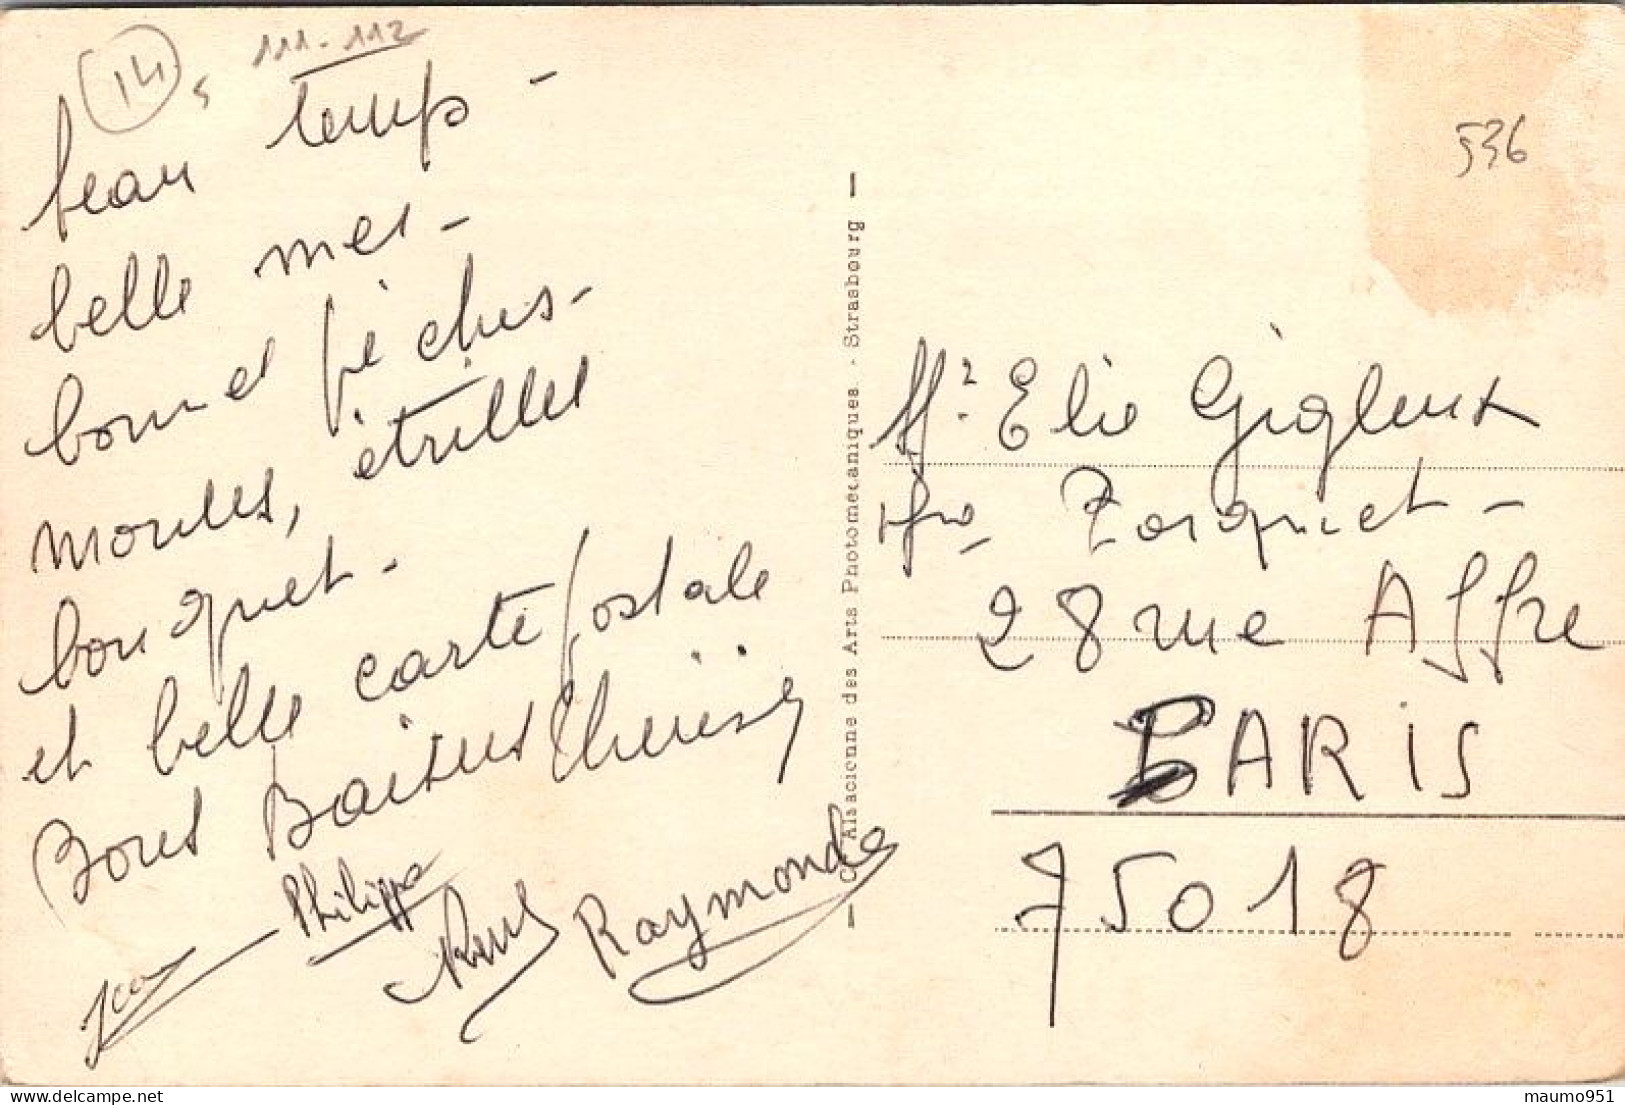 14
5
111-112
beau temps -
belle mer -
bonnes pêches -
moules, étrilles
bouquet -
et belle carte postale
Bons Baisers Thérèse
Philippe
Jean
Raymonde
C Alsacienne des Arts Photomécaniques - Strasbourg
536
Mr Elie Gigleux
28 rue Affre
PARIS
75018
maumo951